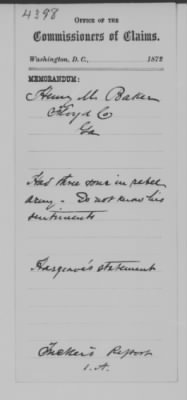 4398
OFFICE OF THE
Commissioners of Claims.
Washington, D. C., 1872
MEMORANDUM:
Henry M. Baker
Floyd C
Ga
Had three sons in rebel
army - Do not know his
sentiments
Hargrave's statement
Tucker's Report
1.A.